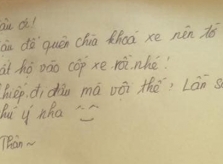 ậu ơi!
ậu để quên chìa khoá xe nên tớ
ất hộ vào cốp xe rồi nhé!
hiếp đi đâu mà vội thế? Lần s
hú ý nha
Thân ~